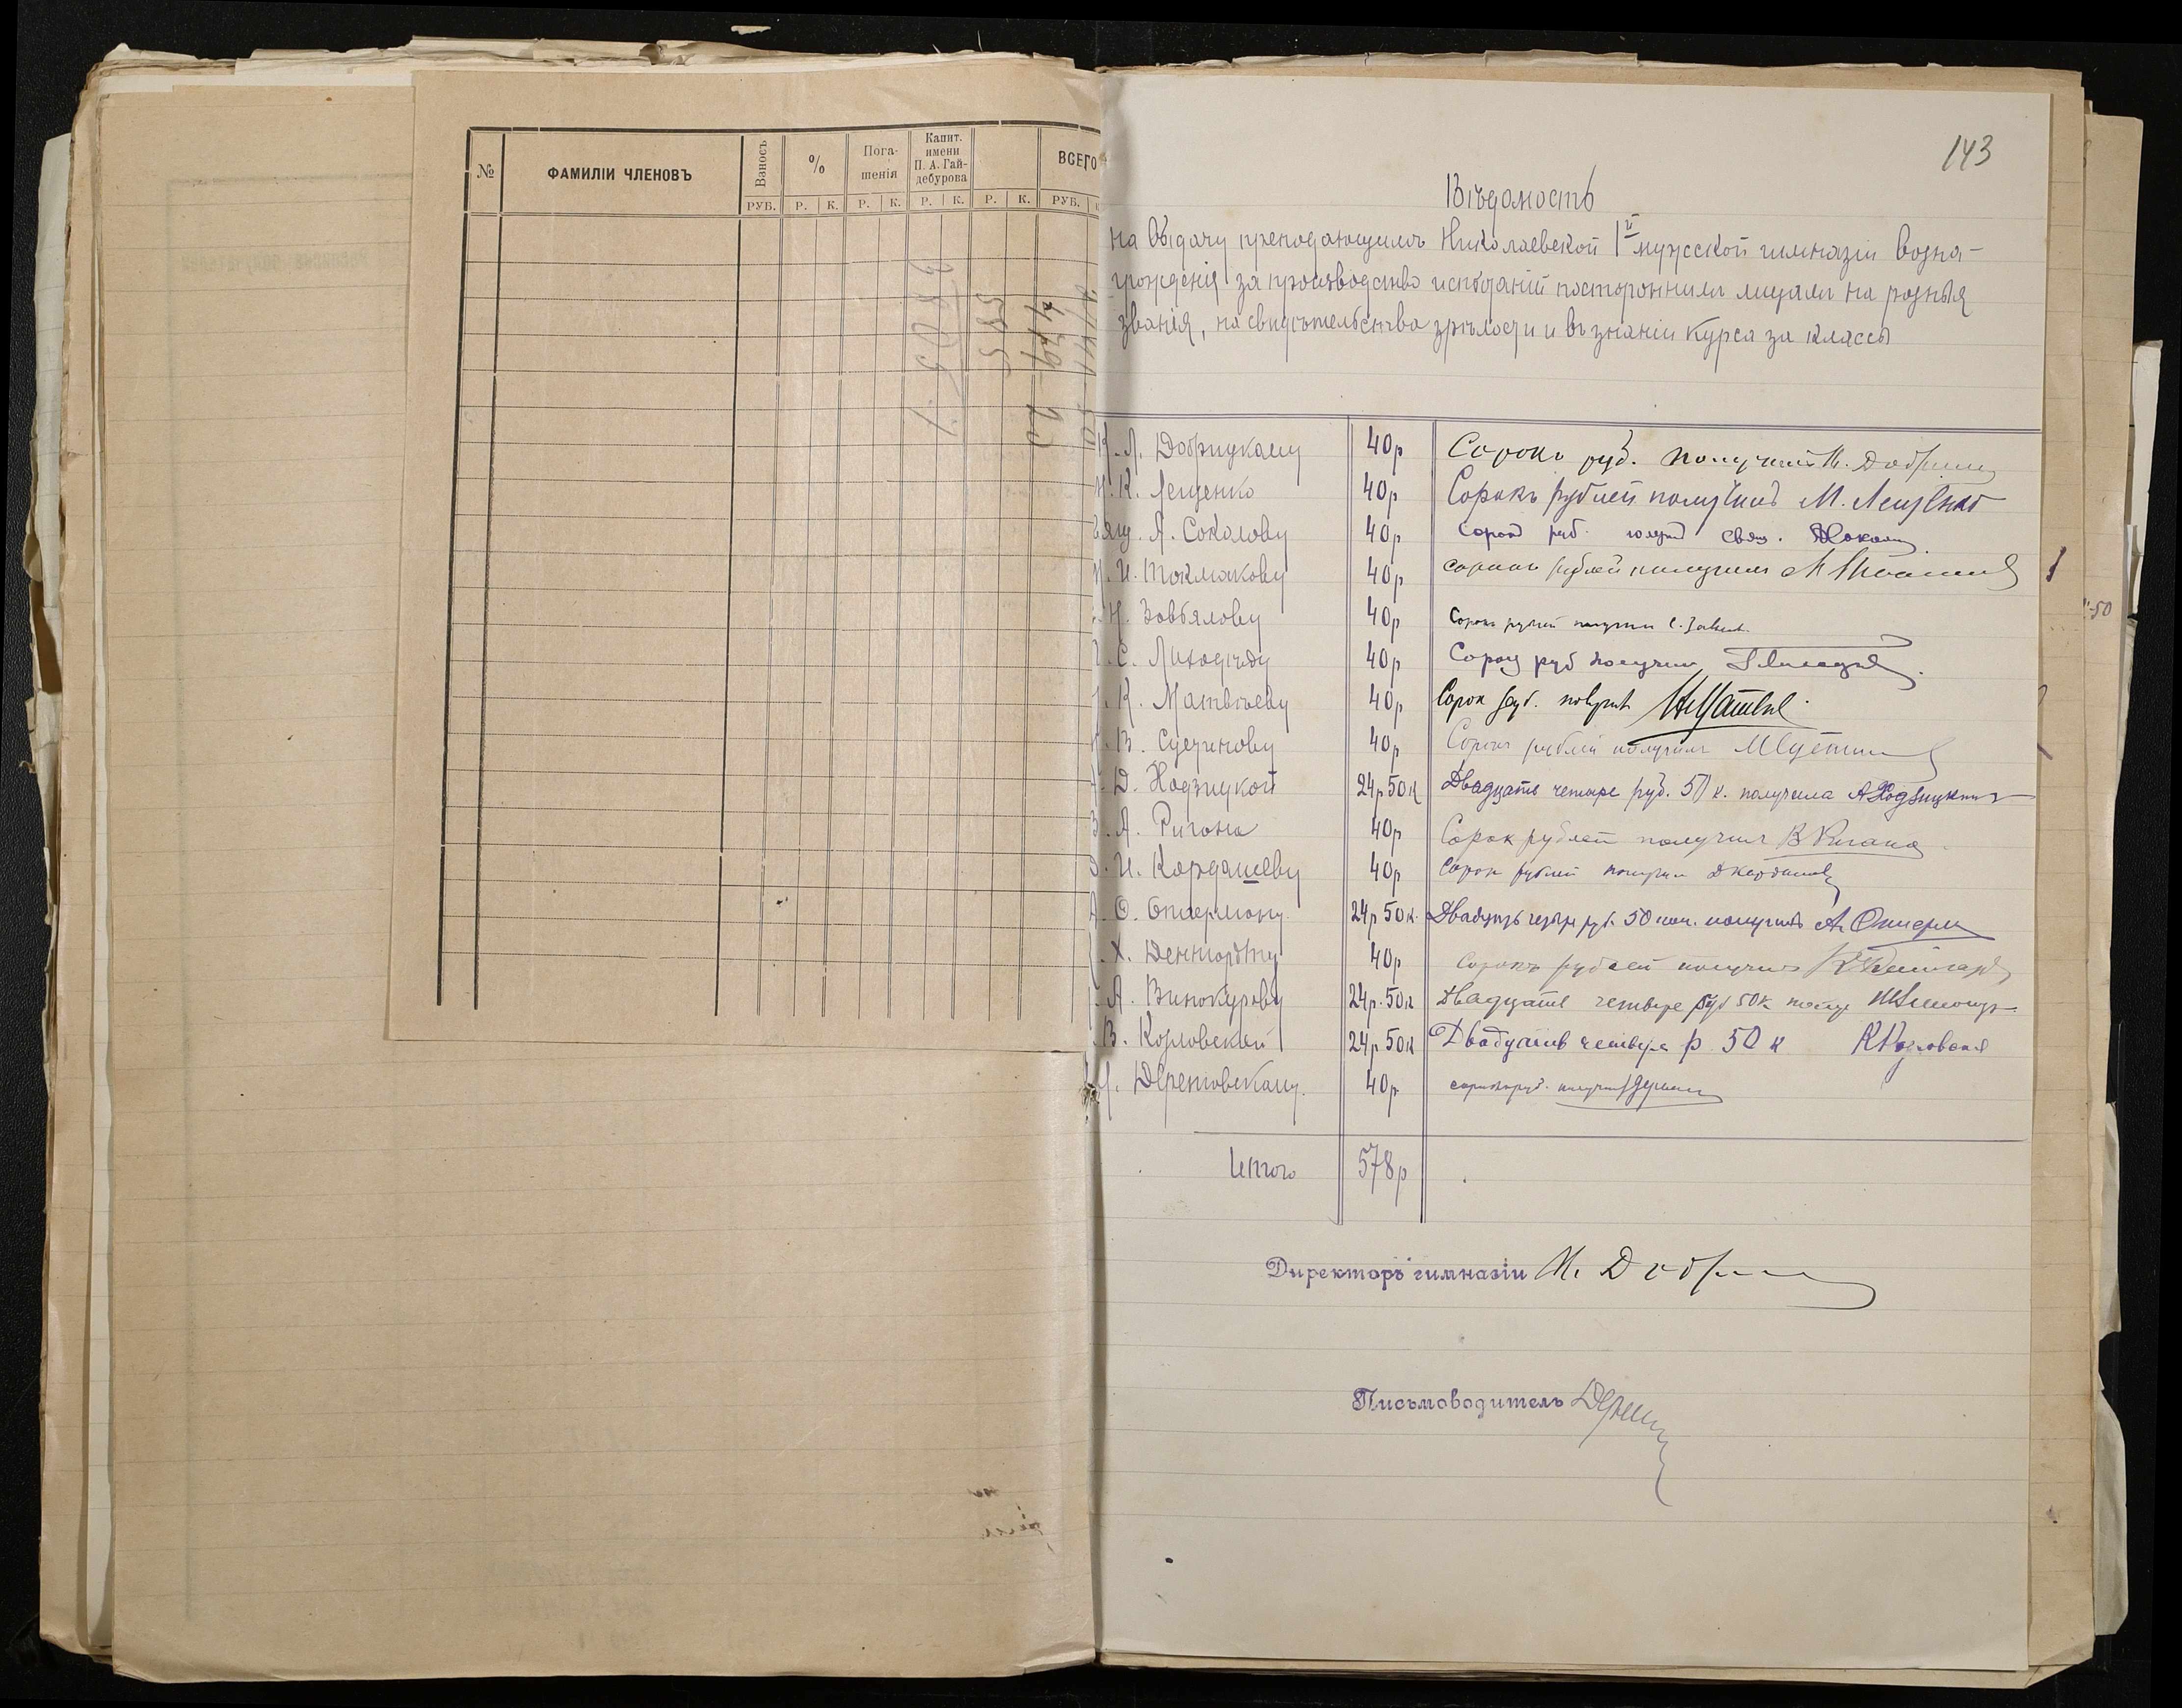 №
ФАМИЛІИ ЧЛЕНОВЪ
Взносъ
%
Пога-
шенія
Капит.
имени
П. А. Гай-
дебурова
ВСЕГО
РУБ. Р. К. Р. К. Р. К. Р. К. РУБ.
143
Вѣдомость
на выдачу преподающимъ Николаевской Iй мужской гимназіи возна-
гражденія за производство испытаній постороннимъ лицамъ на разныя
званія, на свидѣтельства зрѣлости и въ знаніи курса за классы
Л. Добрицкому 40р Сорокъ руб. получилъ Н. Добриц
К. Лещенко 40р Сорокъ рублей получилъ М. Лещенко
А. Соколову 40р Сорокъ руб. свящ.
И. Токмакову 40р сорокъ рублей получилъ
Н. Завьялову 40р Сорокъ рублей получилъ С. Завьял.
С. Лиходѣеву 40р Сорокъ руб получилъ
К. Матвѣеву 40р Сорок руб. получил
В. Сустинову 40р Сорокъ рублей получилъ
Д. Ходзицкой 24р 50к Двадцать четыре руб. 50 к. получила А Ходзицкая
А. Ригана 40р Сорок рублей получил В Ригана
И. Кордашеву 40р Сорок рублей получил Д Кордашев
О. Оттерману 24р 50к. Двадцать четыре руб. 50 коп. получилъ А.
Х. Деннгардту 40р Сорокъ рублей получилъ
А. Винокурову 24р. 50к Двадцать четыре руб 50к
В. Козловской 24р 50к Двадцать четыре р. 50 к К Козловская
Дерешовскому. 40р сорокъ руб. получил
Итого 578р
Директоръ гимназіи Н. Добр
Письмоводитель